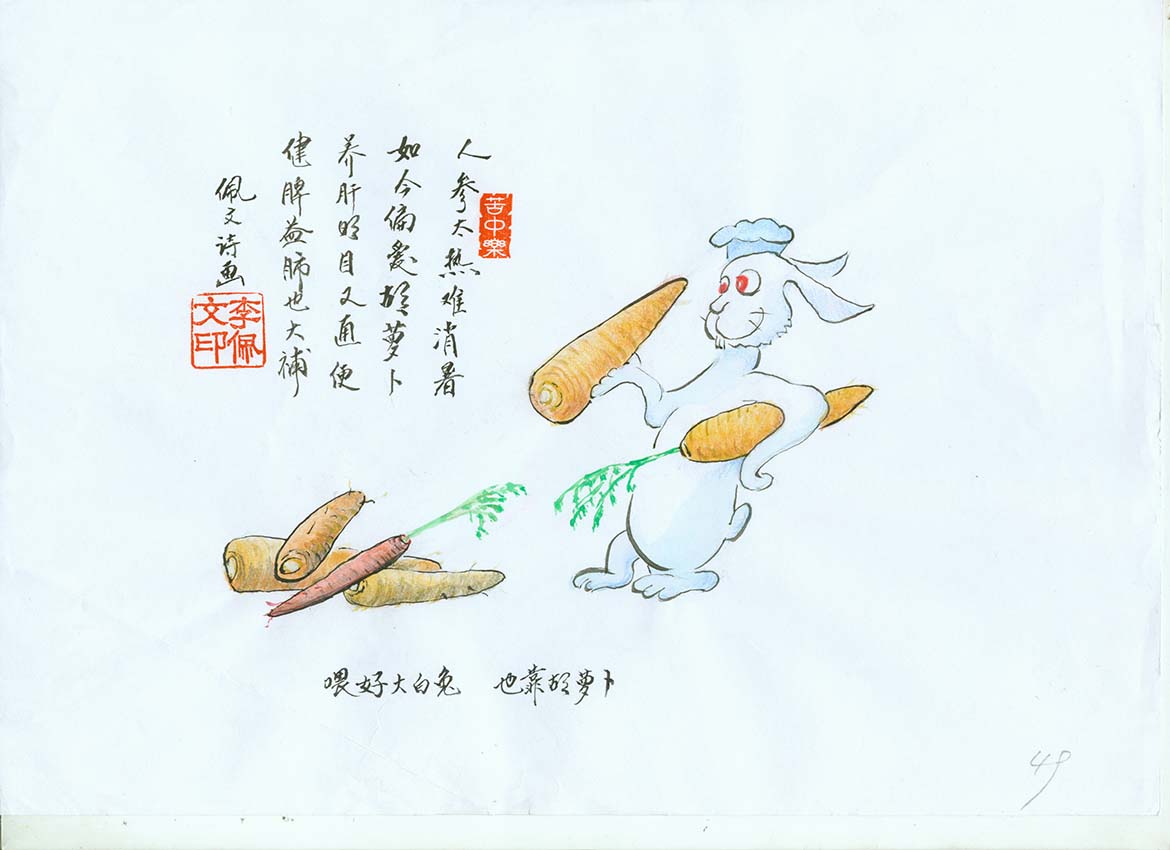 人参太热难消暑
如今偏爱胡萝卜
养肝明目又通便
健脾益肺也大补
佩文诗画
苦中樂
李佩文印
喂好大白兔 也靠胡萝卜
49